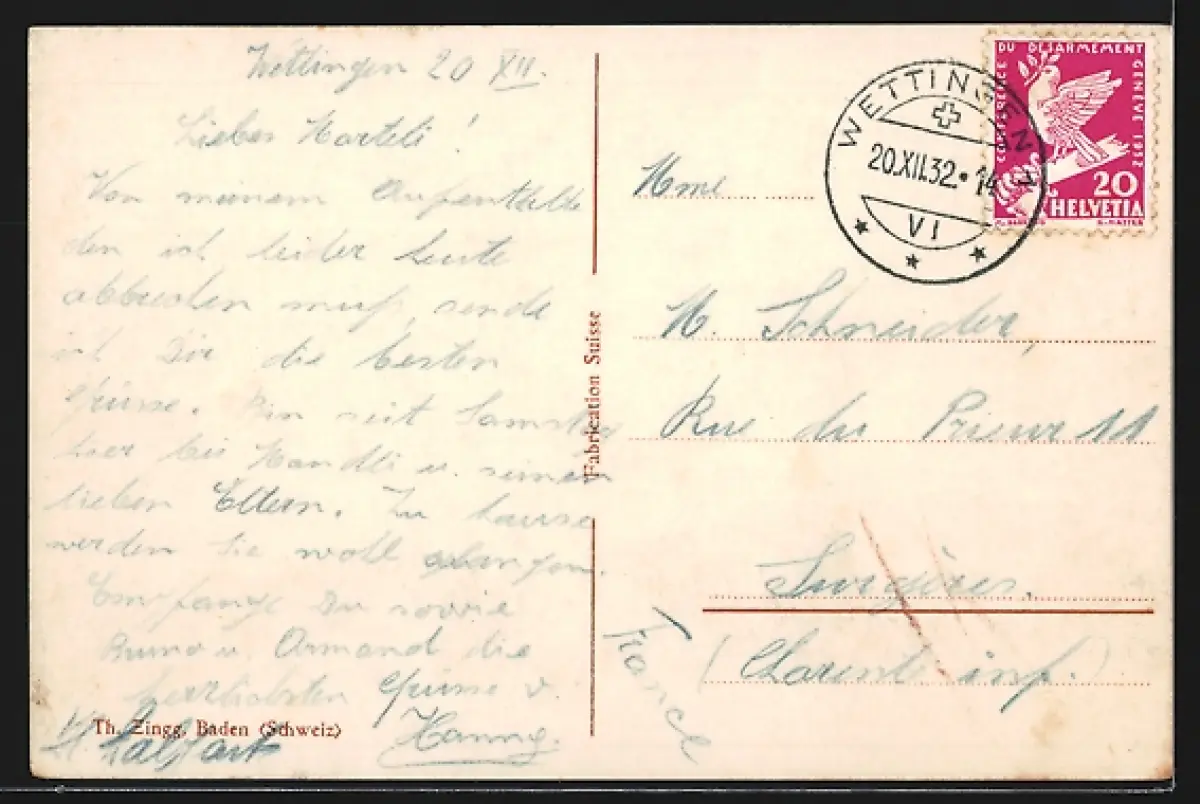 Wettingen 20 XII.
Liebes Marteli!
Von meinem Aufenthalte
den ich leider heute
abbrechen muß, sende
ich Dir die besten
Grüsse. Bin seit Samstag
hier bei Handli u. seinen
lieben Eltern. Zu Hause
werden Sie wohl
Empfange Du sowie
Bruno u. Armand die
herzlichsten Grüsse v.
Hanny.
Th. Zingg, Baden (Schweiz)
Fabrication Suisse
WETTINGEN
20.XII.32.14
VI
CONFERENCE DU DESARMEMENT GENEVE 1932
20
HELVETIA
Mme
M. Schneider,
Rue du Prieur 11
Surgères.
(Charente inf.)
France